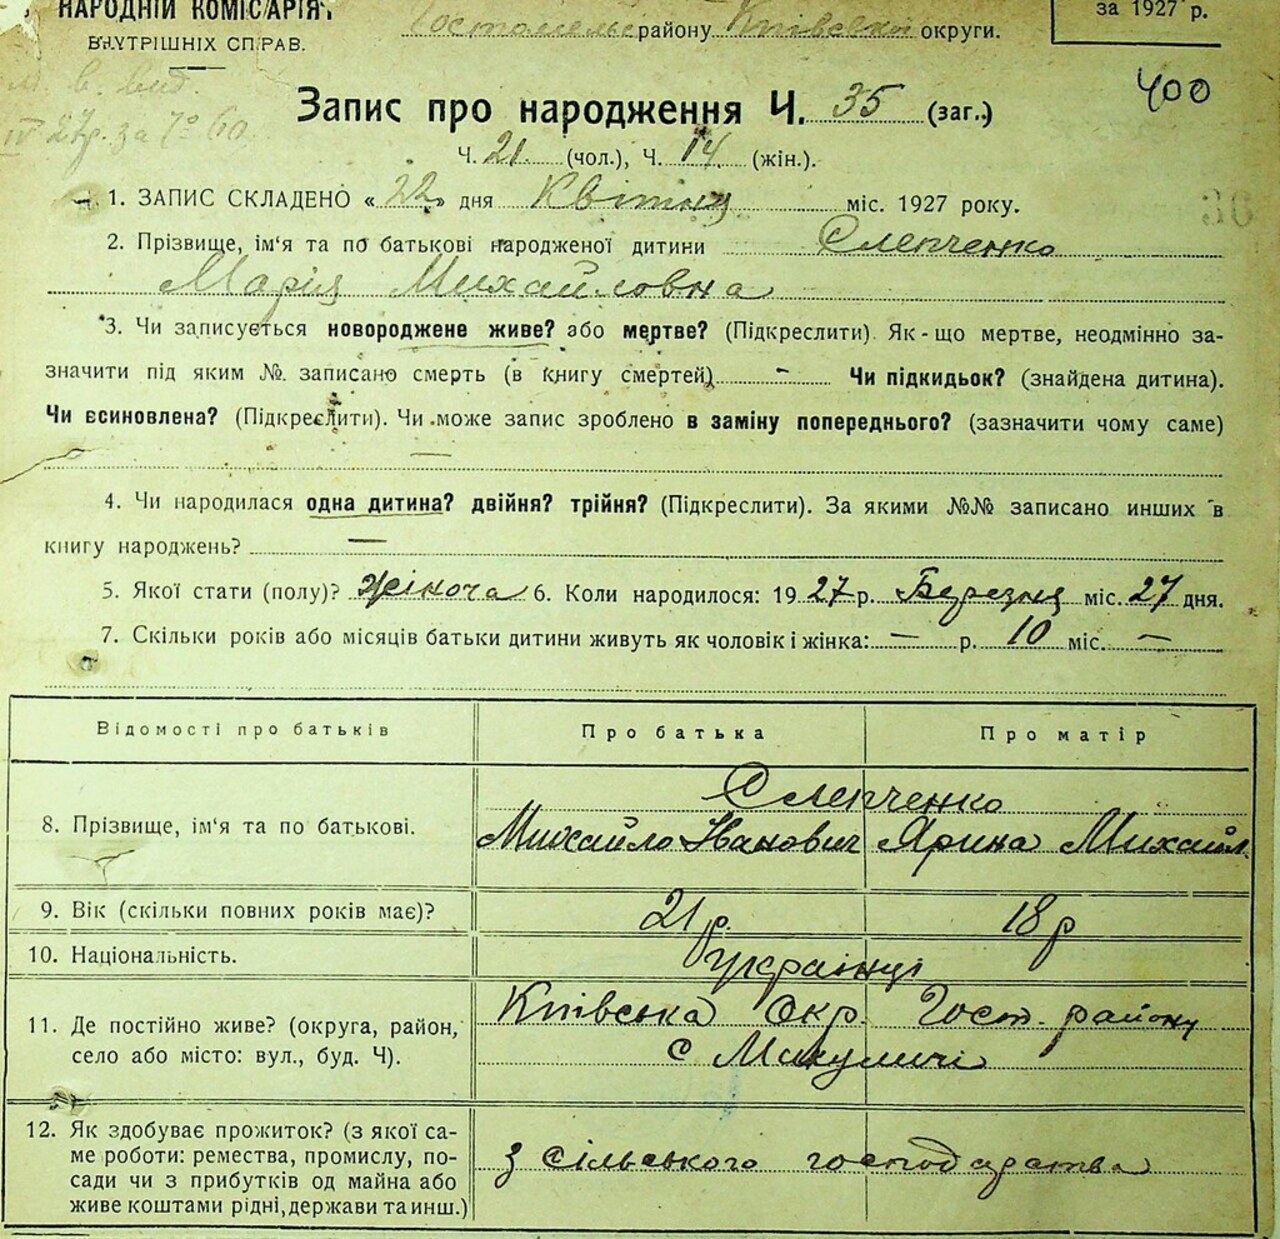 НАРОДНІЙ КОМІСАРІЯТ
ВНУТРІШНІХ СПРАВ.
Гостомельс району Київської округи.
за 1927 р.
400
Запис про народження Ч. 35 (заг.)
Ч. 21 (чол.), Ч. 14 (жін.).
1. ЗАПИС СКЛАДЕНО « 22 » дня Квітня міс. 1927 року.
2. Прізвище, ім'я та по батькові народженої дитини Слепченко
Марія Михайловна
3. Чи записується новороджене живе? або мертве? (Підкреслити). Як-що мертве, неодмінно за-
значити під яким №. записано смерть (в книгу смертей) — Чи підкидьок? (знайдена дитина).
Чи всиновлена? (Підкреслити). Чи може запис зроблено в заміну попереднього? (зазначити чому саме)
—
4. Чи народилася одна дитина? двійня? трійня? (Підкреслити). За якими №№ записано инших в
книгу народжень? —
5. Якої стати (полу)? жіноча 6. Коли народилося: 1927 р. Березня міс. 27 дня.
7. Скільки років або місяців батьки дитини живуть як чоловік і жінка: — р. 10 міс. —
Відомості про батьків Про батька Про матір
Слепченко
8. Прізвище, ім'я та по батькові. Михайло Іванович Ярина Михайл.
9. Вік (скільки повних років має)? 21 р. 18 р
10. Національність. Українці
11. Де постійно живе? (округа, район, Київська Окр. Гост. району
село або місто: вул., буд. Ч). с Микуличі
12. Як здобуває прожиток? (з якої са-
ме роботи: ремества, промислу, по- з сільського господарства
сади чи з прибутків од майна або
живе коштами рідні, держави та инш.)